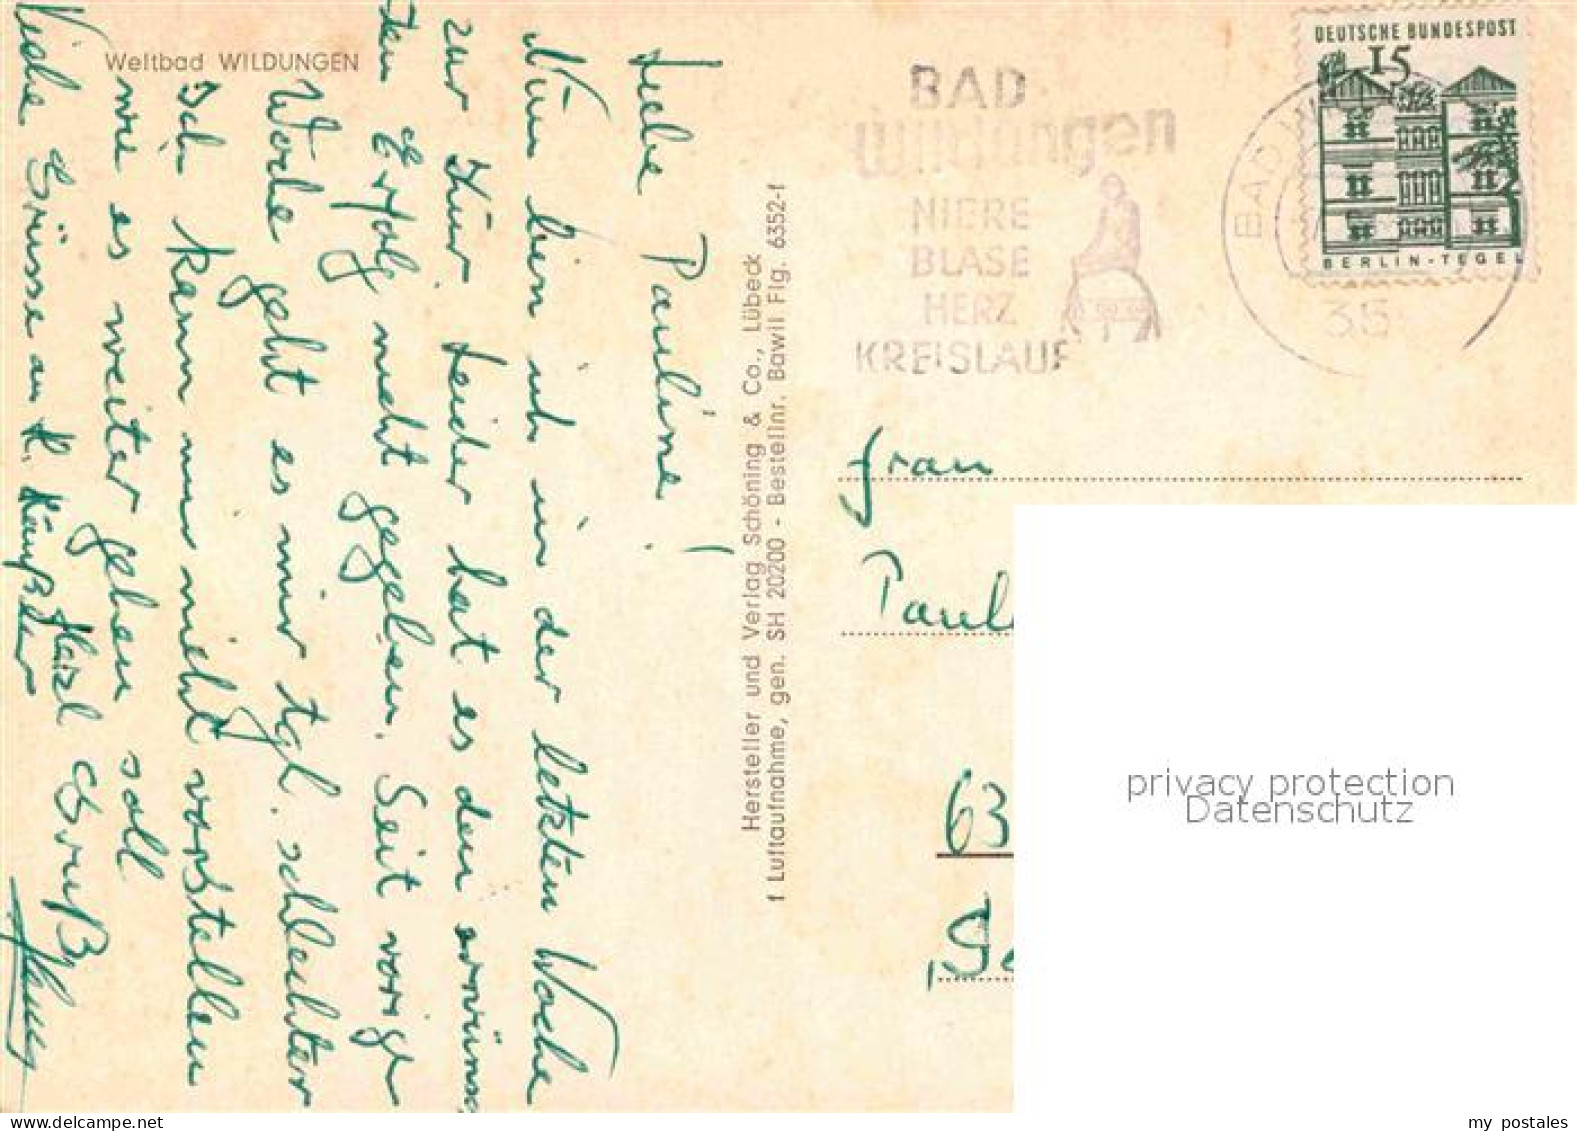 Weltbad WILDUNGEN
Liebe Pauline!
Nun bin ich in der letzten Woche
zur Kur, leider hat es den erwünsch
ten Erfolg nicht gegeben. Seit vorige
Woche geht es mir tgl. schlechter
Ich kann mir nicht vorstellen
wie es weiter gehen soll
Viele Grüsse an
Herzl Gruß
Hersteller und Verlag Schöning & Co., Lübeck
f Luftaufnahme, gen. SH 20200 - Bestellnr. Bawil Flg. 6352-f
BAD
Wildungen
NIERE
BLASE
HERZ
KREISLAUF
BAD
35
DEUTSCHE BUNDESPOST
15
BERLIN-TEGEL
Frau
Paul
63
privacy protection
Datenschutz
www.delcampe.net
my_postales